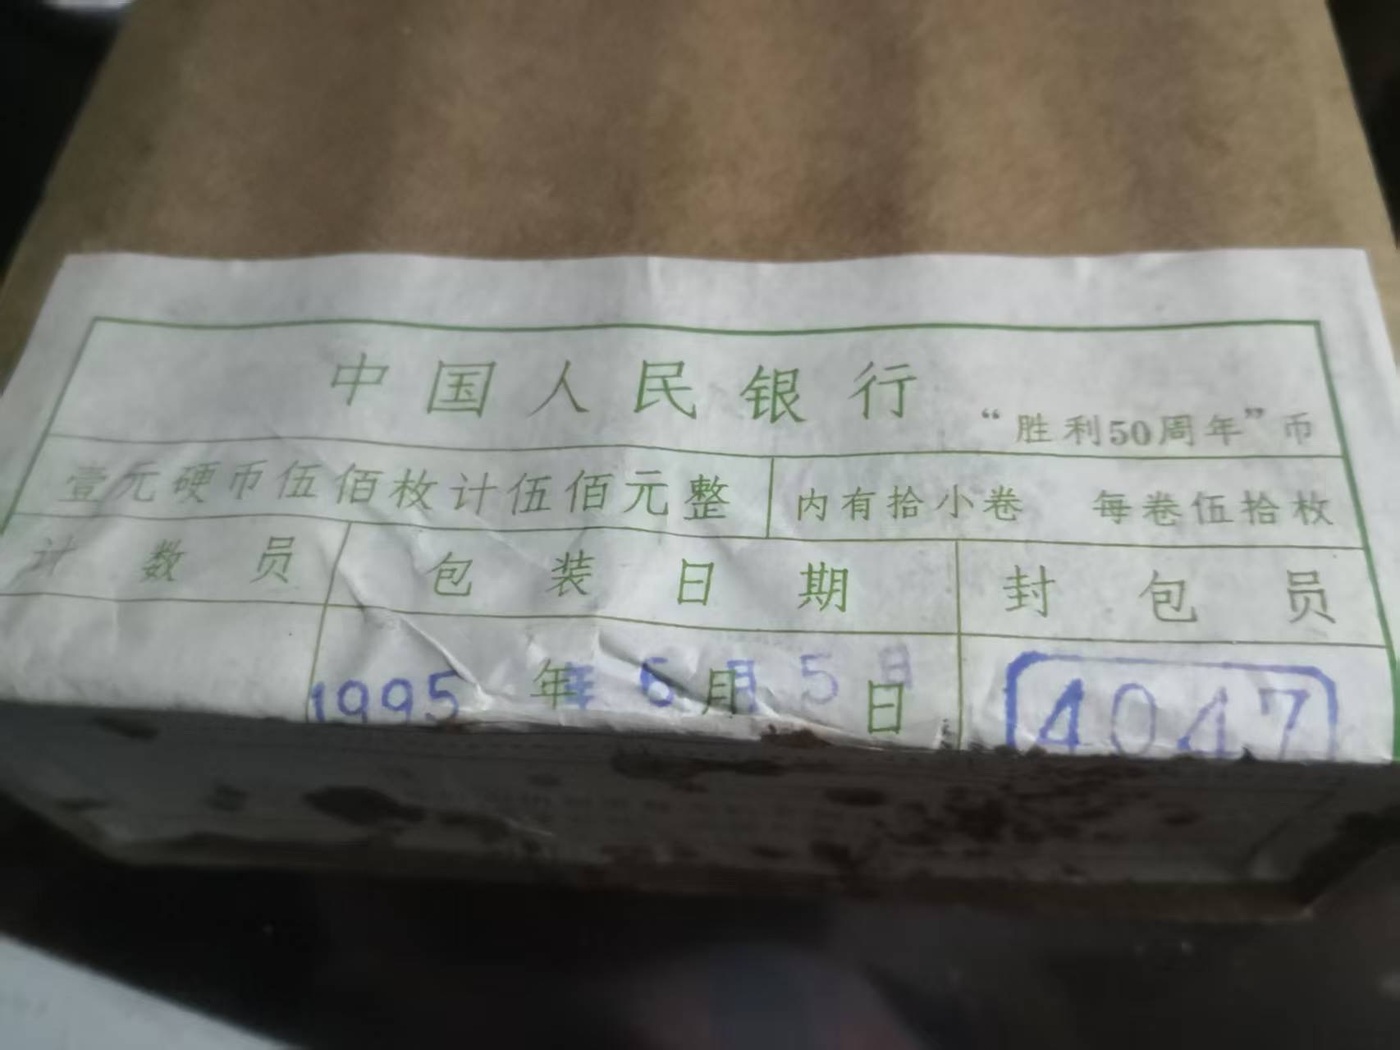 中国人民银行
“胜利50周年”币
壹元硬币伍佰枚计伍佰元整 内有拾小卷 每卷伍拾枚
计数员 包装日期 封包员
1995年 6月 5日 4047